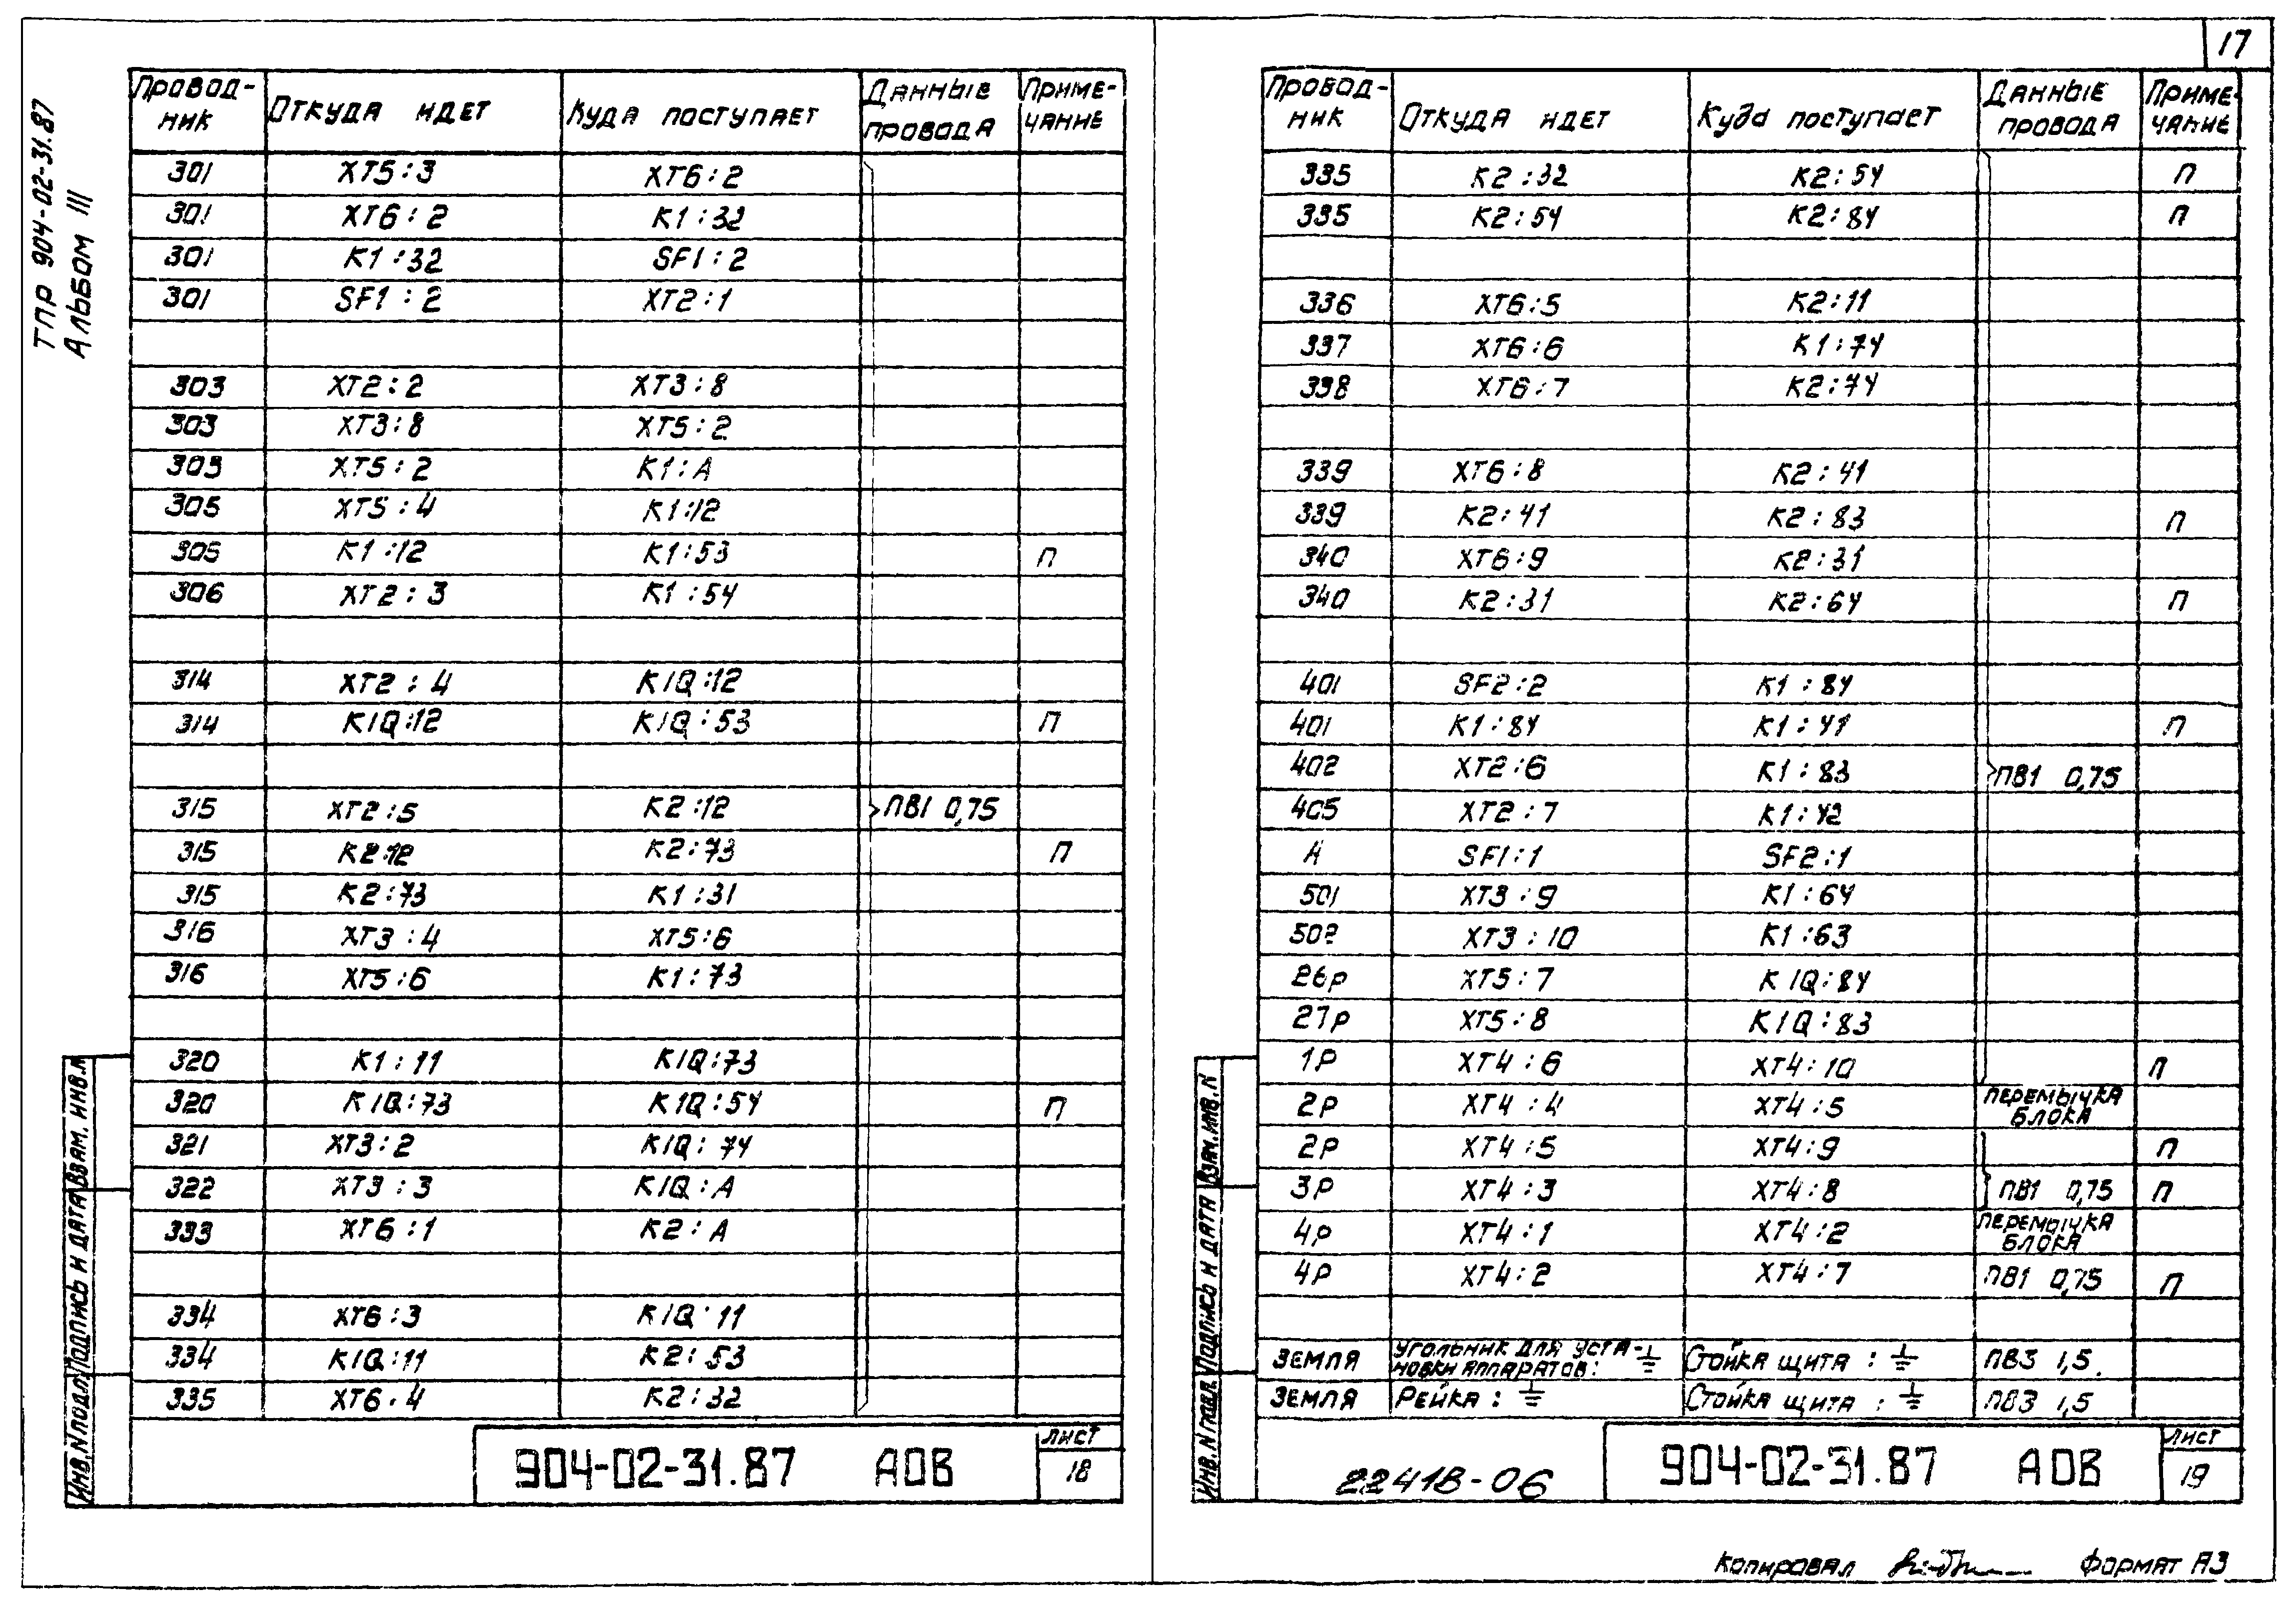 17
ТПР 904-02-31.87
Альбом III
Провод- Откуда идет Куда поступает Данные Приме-
ник провода чание
301 XT5:3 XT6:2
301 XT6:2 K1:32
301 K1:32 SF1:2
301 SF1:2 XT2:1
303 XT2:2 XT3:8
303 XT3:8 XT5:2
303 XT5:2 K1:A
305 XT5:4 K1:12
305 K1:12 K1:53 П
306 XT2:3 K1:54
314 XT2:4 K1Q:12
314 K1Q:12 K1Q:53 П
315 XT2:5 K2:12 ПВ1 0,75
315 K2:12 K2:73 П
315 K2:73 K1:31
316 XT3:4 XT5:6
316 XT5:6 K1:73
320 K1:11 K1Q:73
320 K1Q:73 K1Q:54 П
321 XT3:2 K1Q:74
322 XT3:3 K1Q:A
333 XT6:1 K2:A
334 XT6:3 K1Q:11
334 K1Q:11 K2:53
335 XT6:4 K2:32
Инв.N подл. Подпись и дата Взам. инв.N
904-02-31.87 АОВ
Лист
18
Провод- Откуда идет Куда поступает Данные Приме-
ник провода чание
335 K2:32 K2:54 П
335 K2:54 K2:84 П
336 XT6:5 K2:11
337 XT6:6 K1:74
338 XT6:7 K2:74
339 XT6:8 K2:41
339 K2:41 K2:83 П
340 XT6:9 K2:31
340 K2:31 K2:64 П
401 SF2:2 K1:84
401 K1:84 K1:41 П
402 XT2:6 K1:83 ПВ1 0,75
405 XT2:7 K1:42
A SF1:1 SF2:1
501 XT3:9 K1:64
502 XT3:10 K1:63
26P XT5:7 K1Q:84
27P XT5:8 K1Q:83
1P XT4:6 XT4:10 П
2P XT4:4 XT4:5 перемычка
блока
2P XT4:5 XT4:9 П
3P XT4:3 XT4:8 ПВ1 0,75 П
4P XT4:1 XT4:2 перемычка
блока
4P XT4:2 XT4:7 ПВ1 0,75 П
Земля Угольник для уста-
новки аппаратов: ⏚ Стойка щита : ⏚ ПВ3 1,5.
Земля Рейка : ⏚ Стойка щита : ⏚ ПВ3 1,5
Инв.N подл. Подпись и дата Взам.инв.N
22418-06
904-02-31.87 АОВ
Лист
19
Копировал
Формат А3